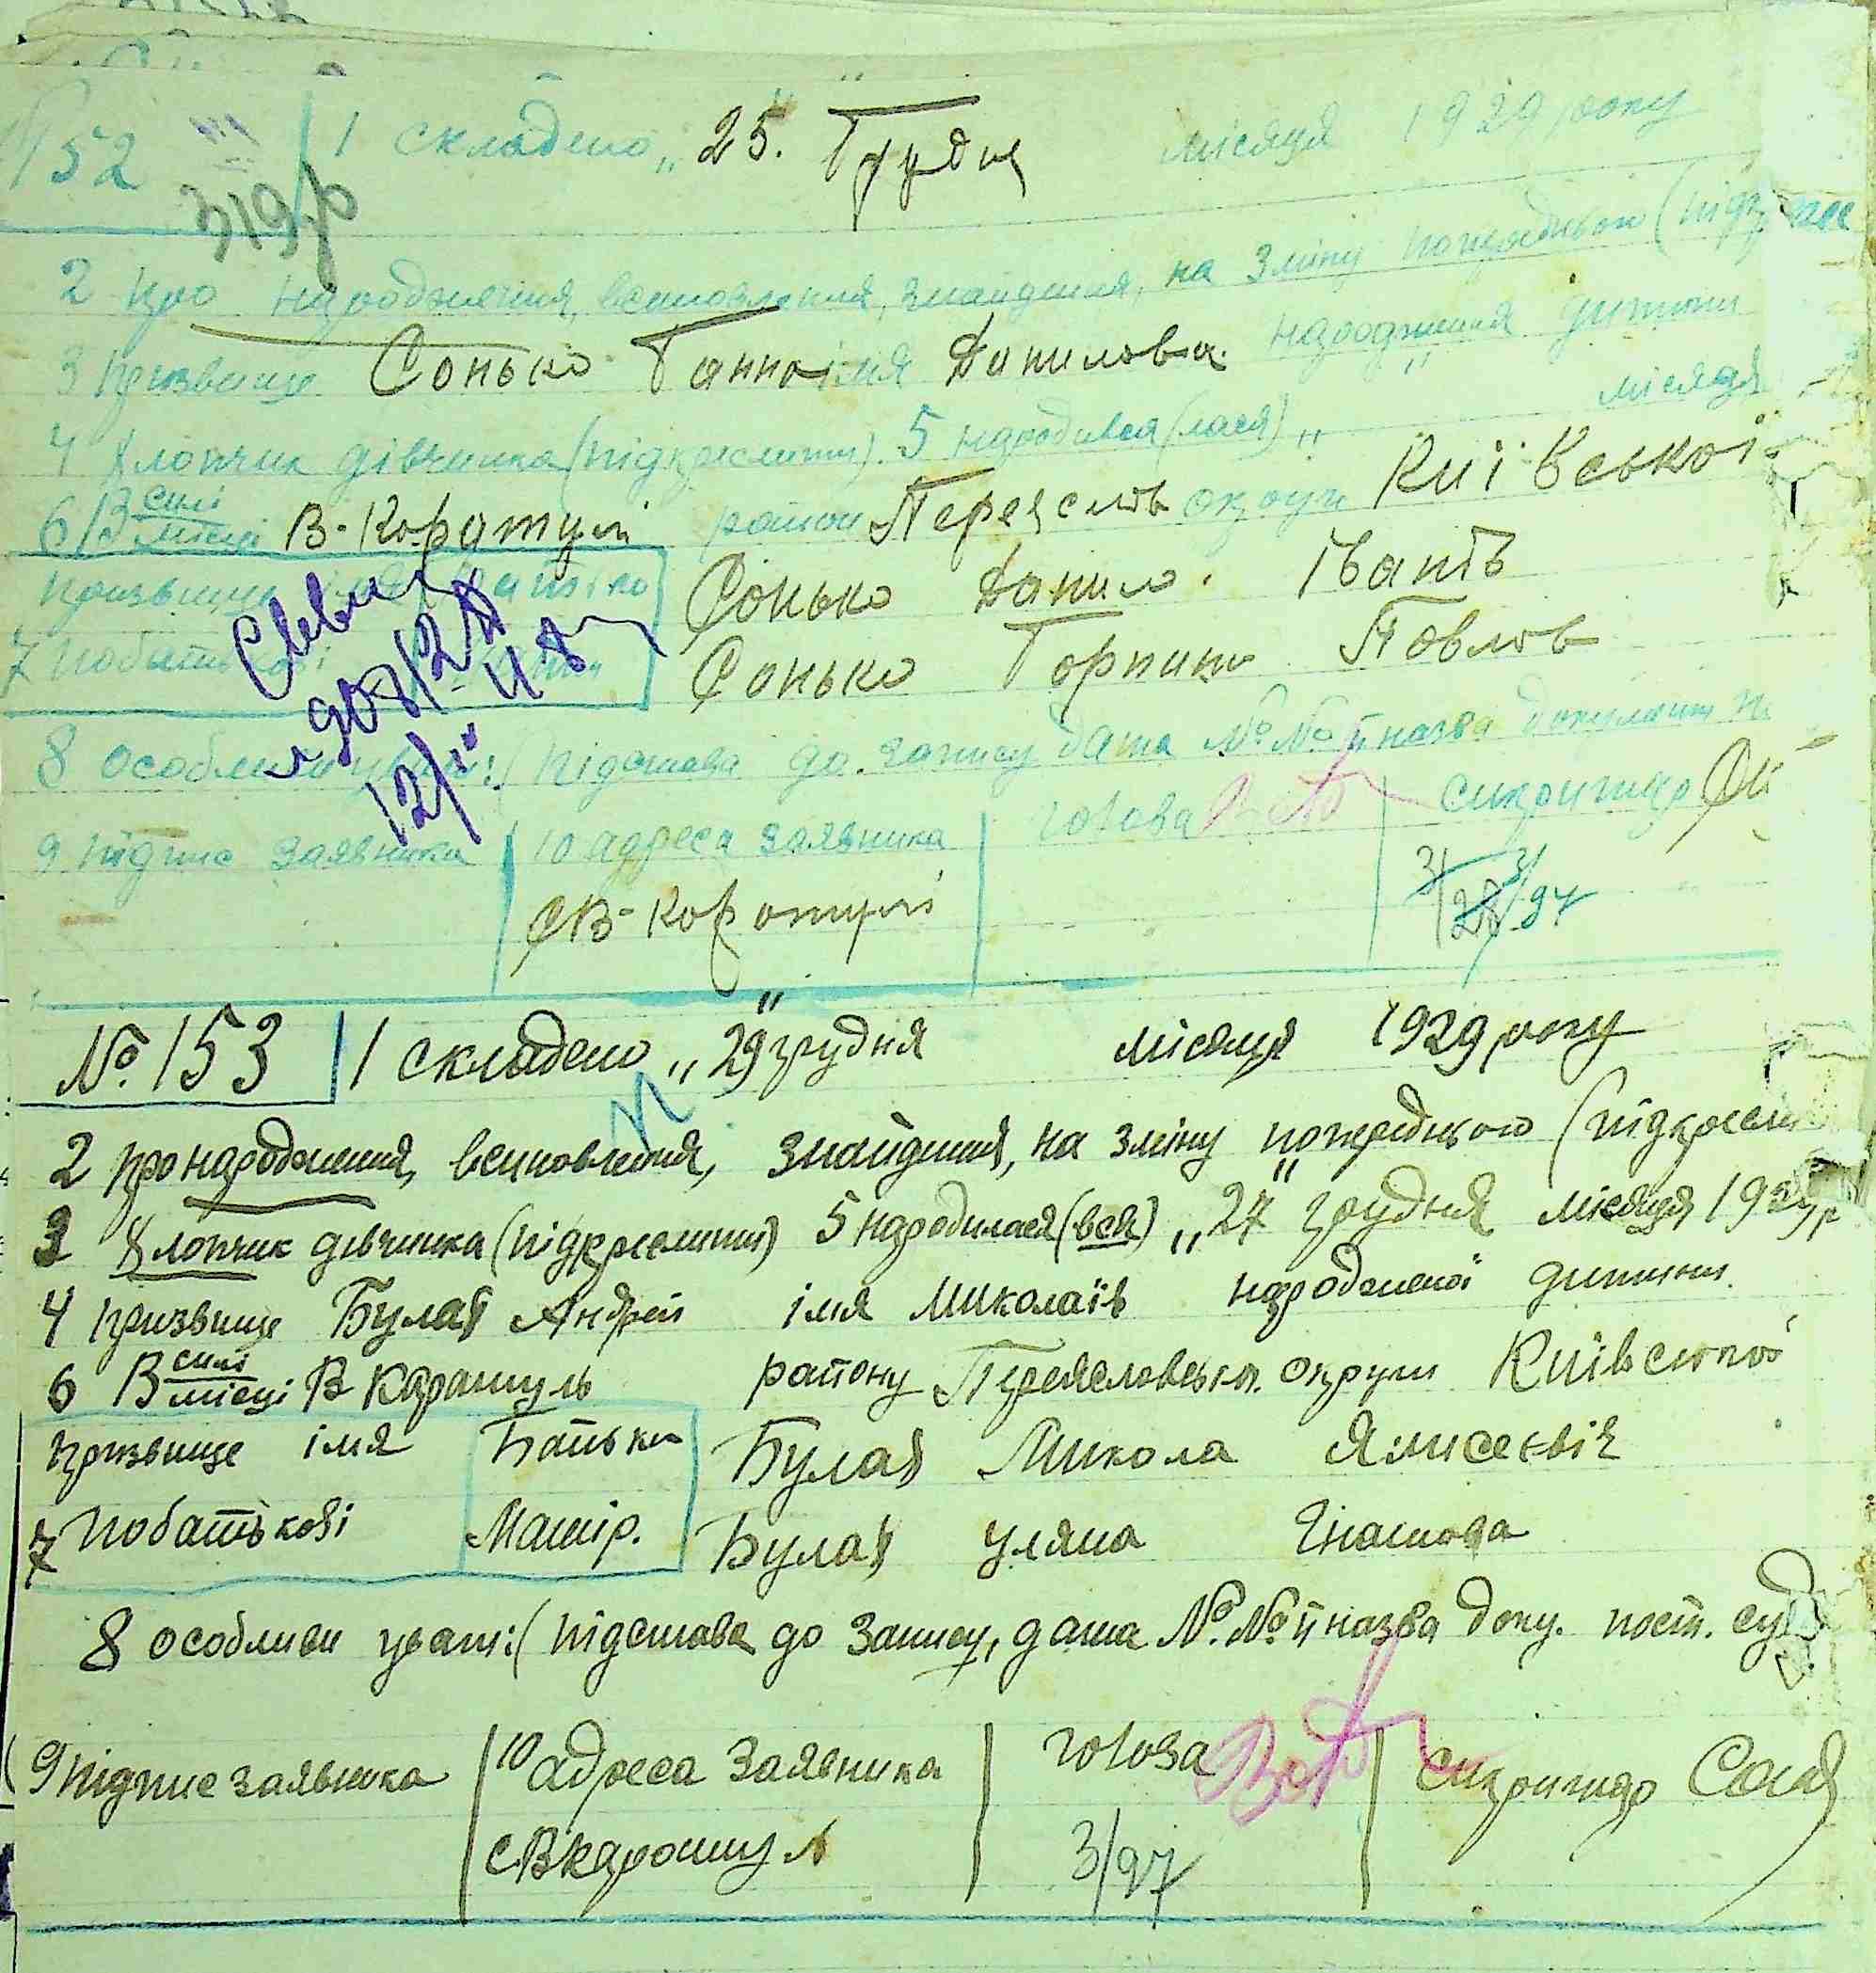 152 | 1 складено „25." Грудня місяця 1929 року
319р
2 про народження, встановлення, знайдення, на зміну попереднього (підкресл
3 призвище Сонько Ганна імя Данилова народження дитини
4 Хлопчик дівчинка (підкреслити) 5 народився (лася) „ " місяця
6 В селі місці В-Каратулі район Переяслів округи Київської
призвище імя батько Сонько Данило Іванів
7 Побатькові Сонько Горпина Павлов
908/2
12/IV
8 особливи уваги: (підстава до запису дата №№ й назва документ
9 підпис заявника | 10 адреса заявника | голова | сикритар
С В-Каратулі
3/97
№ 153 | 1 складено „29" грудня місяця 1929 року
2 про народження, встановлення, знайдення, на зміну попереднього (підкресли
3 Хлопчик дівчинка (підкреслити) 5 народилася (вся) „27" грудня місяця 1929 р
4 призвище Булах Андрей імя Миколаїв народженої дитини
6 В селі місці В Каратуль району Переясловськ. округи Київської
призвище імя Батько Булах Микола
7 Побатькові Матір. Булах Уляна
8 особливи уваги: (підстава до запису, дата №№ й назва доку. пост. суд
9 підпис заявника | 10 адреса заявника | голова | сикритар
с. В Каратуль 3/97